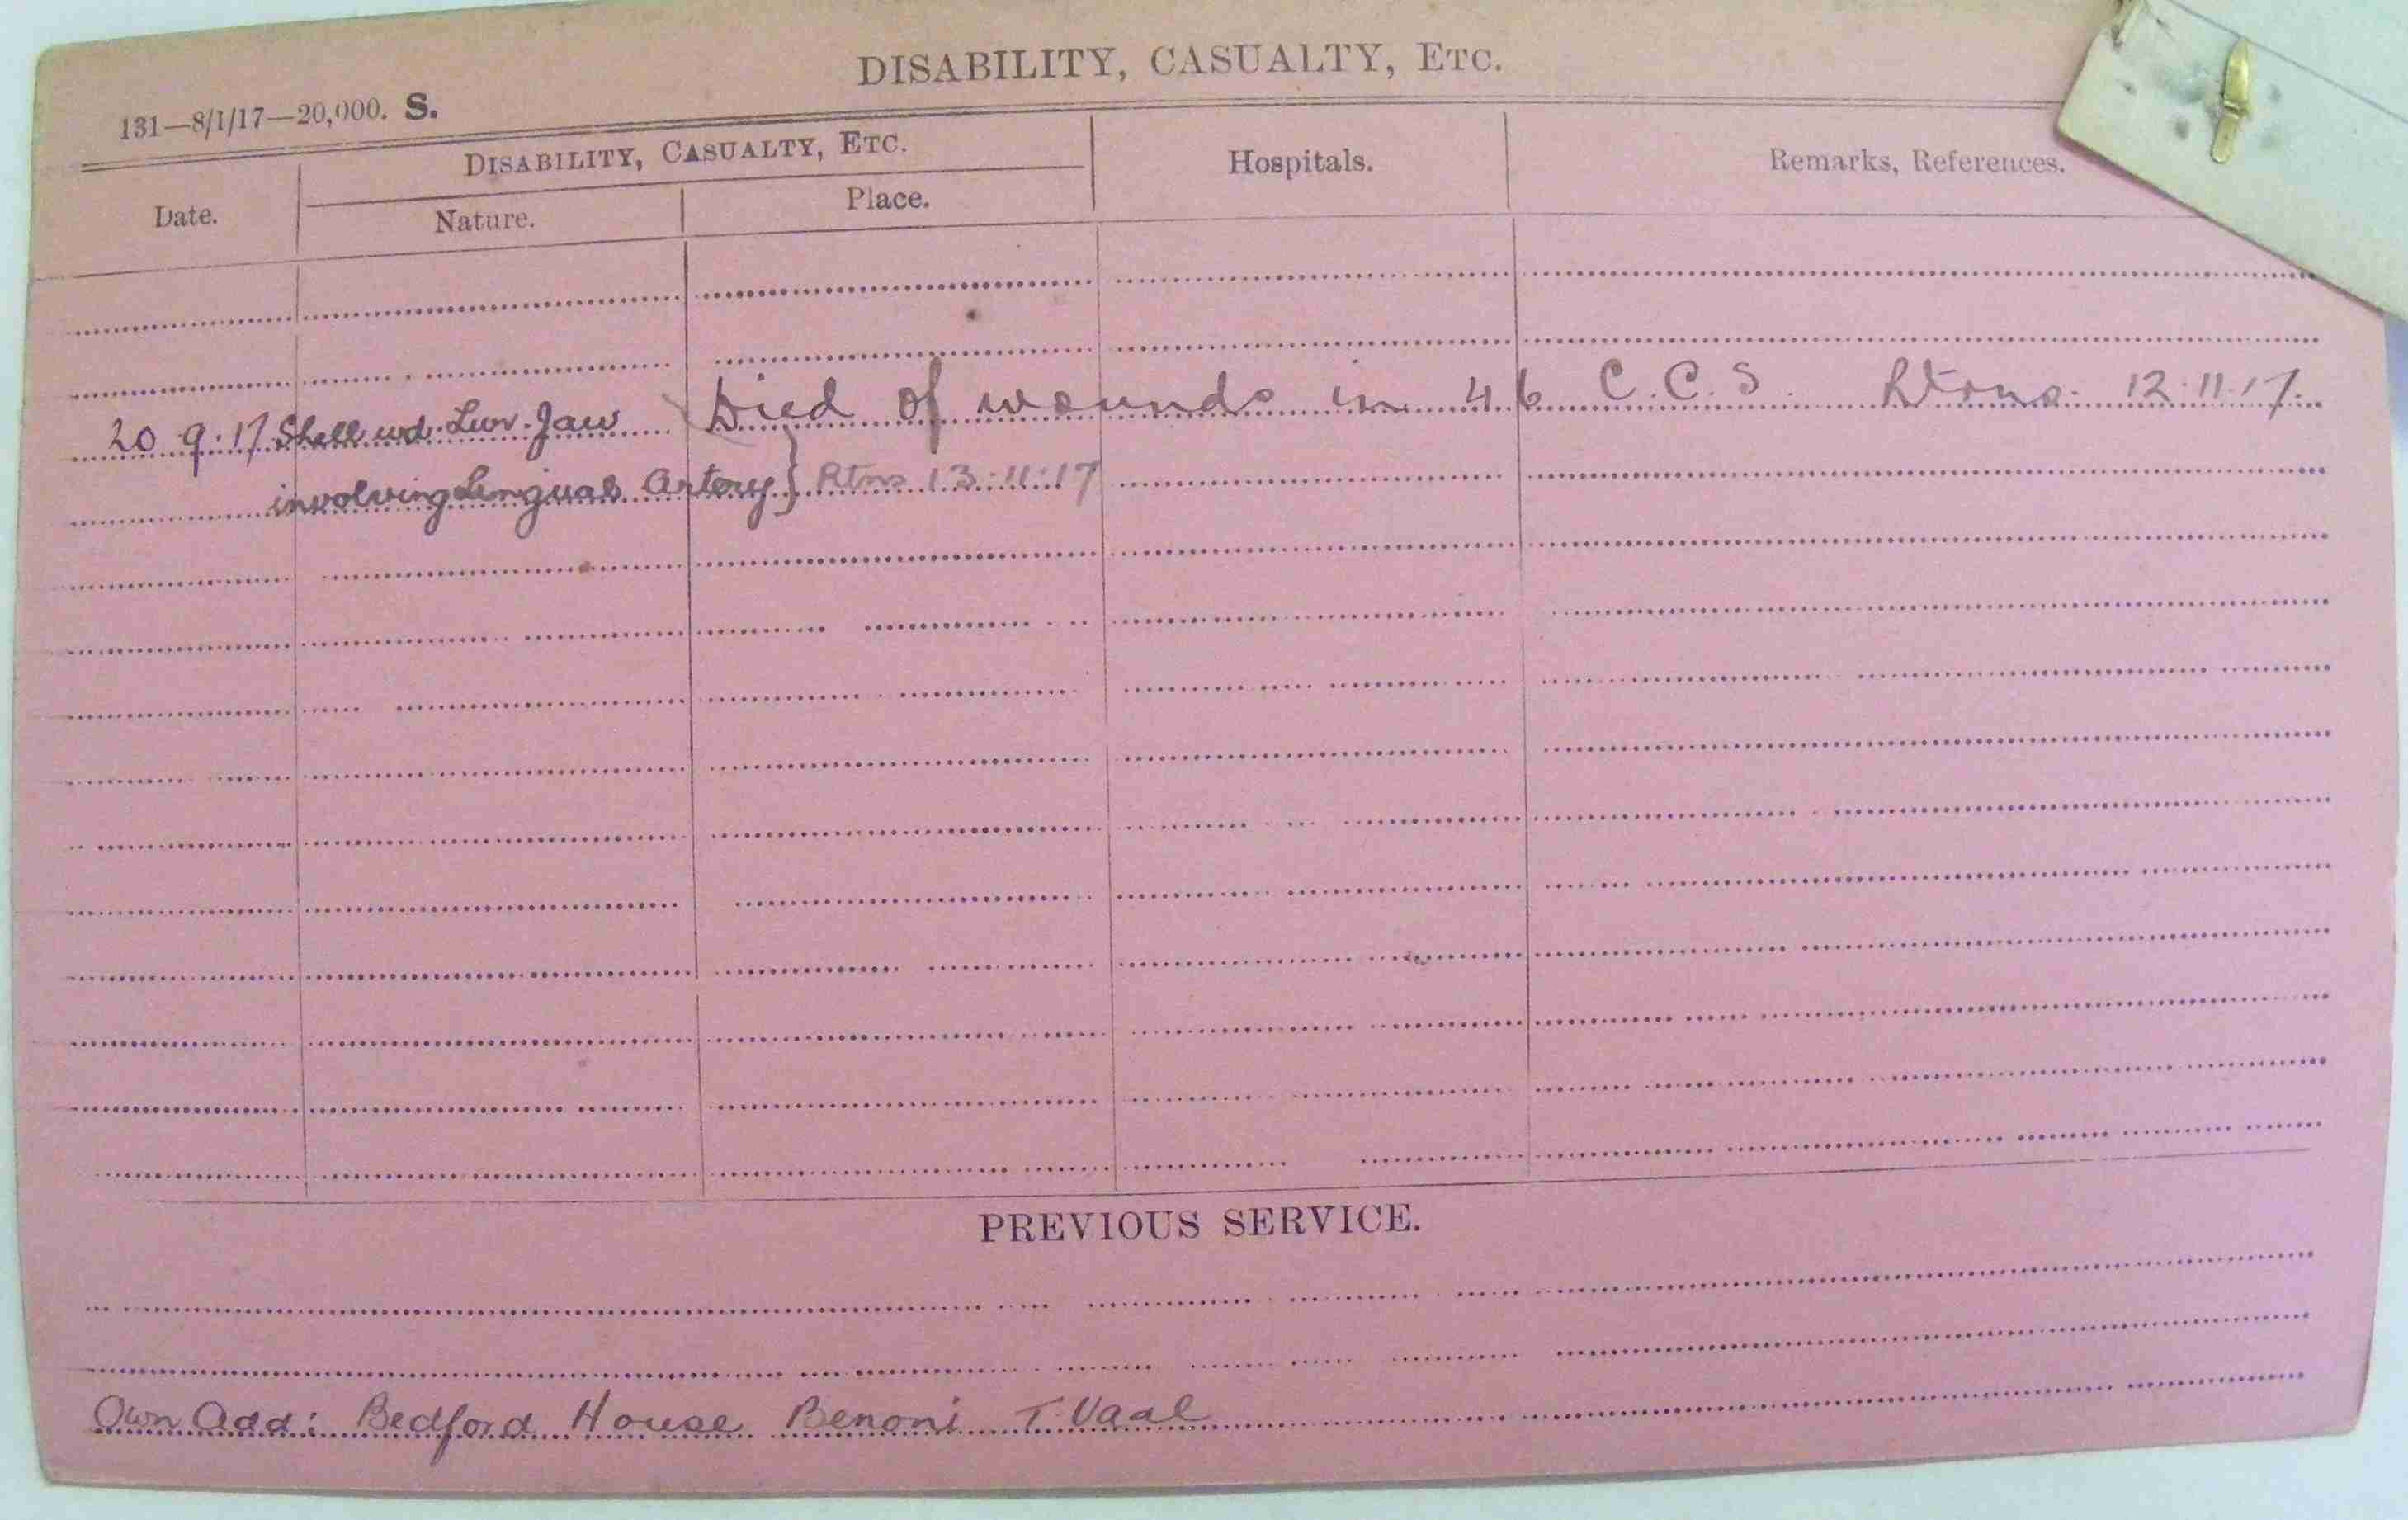 DISABILITY, CASUALTY, ETC.
131—8/1/17—20,000. S.
DISABILITY, CASUALTY, ETC.
Hospitals.
Remarks, References.
Date.
Nature.
Place.
20.9.17 Shell wd. Lwr. Jaw Died of wounds in 46 C.C.S. Rtrns. 12.11.17.
involving Lingual Artery } Rtns 13:11:17
PREVIOUS SERVICE.
Own Add: Bedford House Benoni T. Vaal